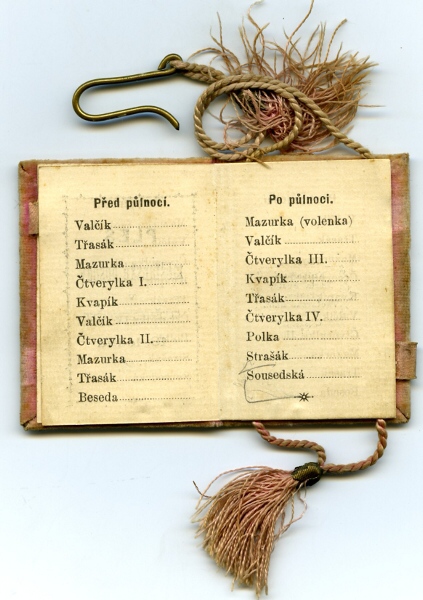 Před půlnocí.
Valčík
Třasák
Mazurka
Čtverylka I.
Kvapík
Valčík
Čtverylka II.
Mazurka
Třasák
Beseda
Po půlnoci.
Mazurka (volenka)
Valčík
Čtverylka III.
Kvapík
Třasák
Čtverylka IV.
Polka
Strašák
Sousedská